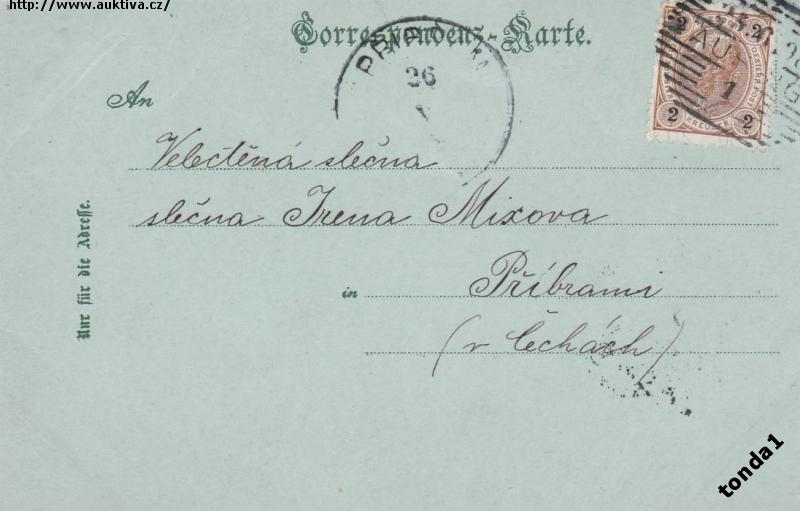 http://www.auktiva.cz/
Correspondenz-Karte.
An
Velectěná slečna
slečna Irena Mixova
in Příbrami
(v Čechách)
Nur für die Adresse.
26
1
2 2
2 2
tonda1